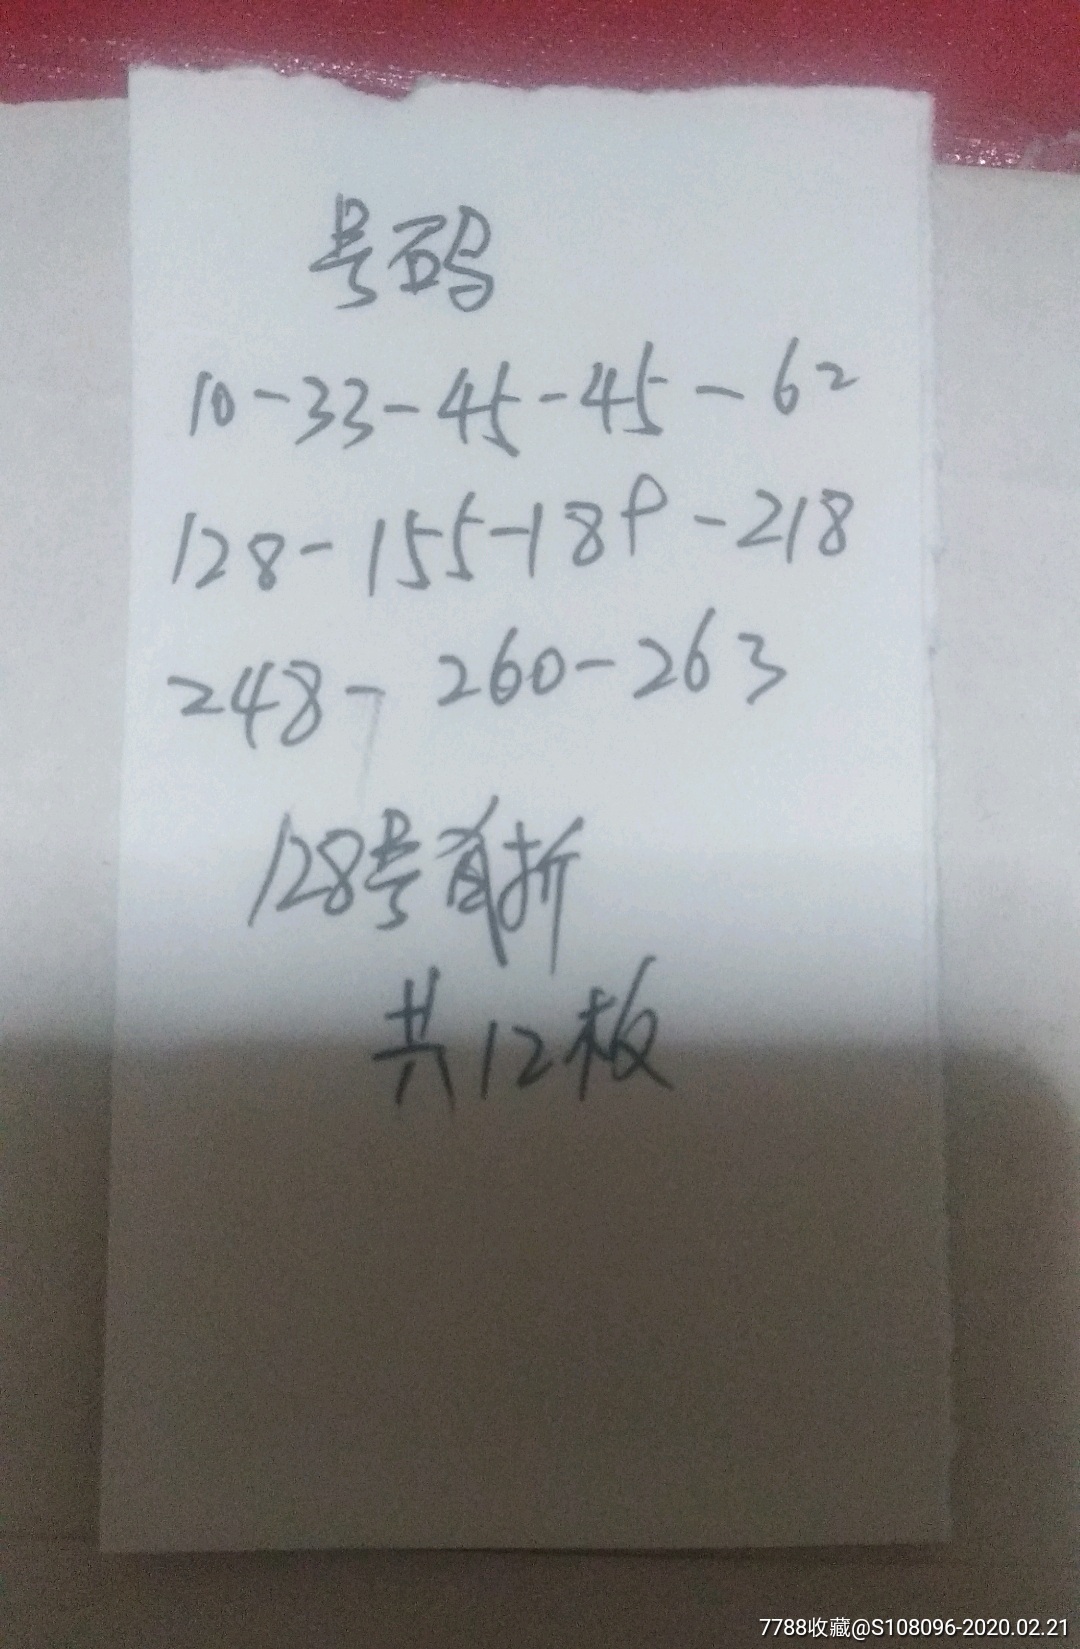 号码
10-33-45-45-62
128-155-189-218
248-260-263
128号有折
共12板
7788收藏@S108096-2020.02.21